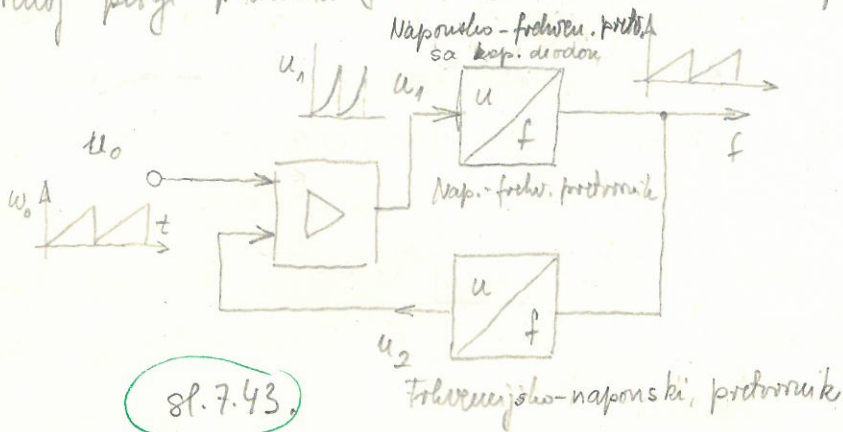 Naponsko-frekven. pretv.
sa kap. diodom
u₁
u₁
u
f
f
u₀
Nap.-frekv. pretvornik
w₀
t
u
f
u₂
sl. 7.43.
Frekvencijsko-naponski pretvornik